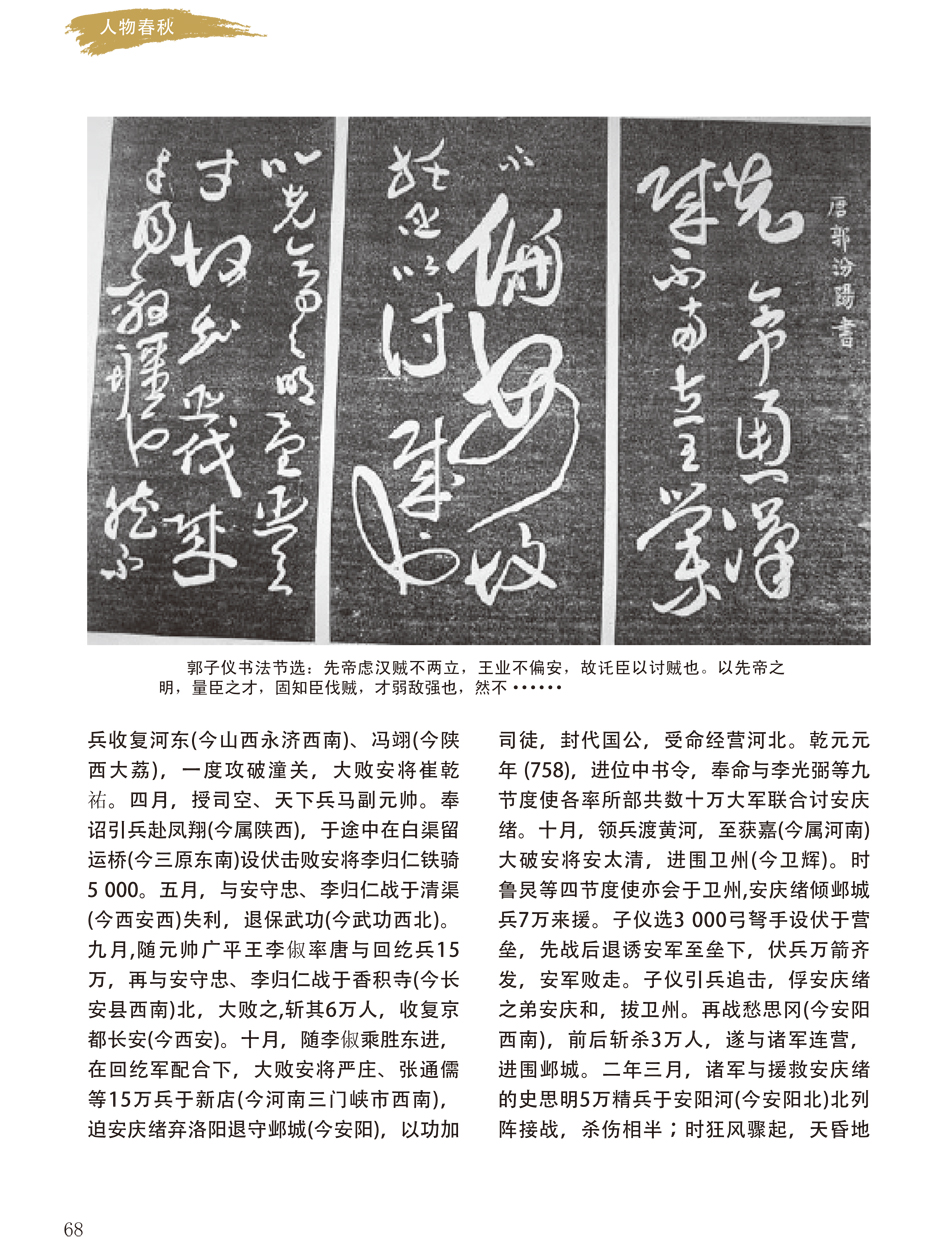 人物春秋
唐郭汾陽書
先帝慮漢
賊不兩立王業
不偏安故
託臣以討賊也
以先帝之明量臣之
才故知臣伐賊
才弱敵疆也然不
郭子仪书法节选：先帝虑汉贼不两立，王业不偏安，故讬臣以讨贼也。以先帝之
明，量臣之才，固知臣伐贼，才弱敌强也，然不······
兵收复河东(今山西永济西南)、冯翊(今陕
西大荔)，一度攻破潼关，大败安将崔乾
祐。四月，授司空、天下兵马副元帅。奉
诏引兵赴凤翔(今属陕西)，于途中在白渠留
运桥(今三原东南)设伏击败安将李归仁铁骑
5 000。五月，与安守忠、李归仁战于清渠
(今西安西)失利，退保武功(今武功西北)。
九月,随元帅广平王李俶率唐与回纥兵15
万，再与安守忠、李归仁战于香积寺(今长
安县西南)北，大败之,斩其6万人，收复京
都长安(今西安)。十月，随李俶乘胜东进，
在回纥军配合下，大败安将严庄、张通儒
等15万兵于新店(今河南三门峡市西南)，
追安庆绪弃洛阳退守邺城(今安阳)，以功加
司徒，封代国公，受命经营河北。乾元元
年 (758)，进位中书令，奉命与李光弼等九
节度使各率所部共数十万大军联合讨安庆
绪。十月，领兵渡黄河，至获嘉(今属河南)
大破安将安太清，进围卫州(今卫辉)。时
鲁炅等四节度使亦会于卫州,安庆绪倾邺城
兵7万来援。子仪选3 000弓弩手设伏于营
垒，先战后退诱安军至垒下，伏兵万箭齐
发，安军败走。子仪引兵追击，俘安庆绪
之弟安庆和，拔卫州。再战愁思冈(今安阳
西南)，前后斩杀3万人，遂与诸军连营，
进围邺城。二年三月，诸军与援救安庆绪
的史思明5万精兵于安阳河(今安阳北)北列
阵接战，杀伤相半；时狂风骤起，天昏地
68